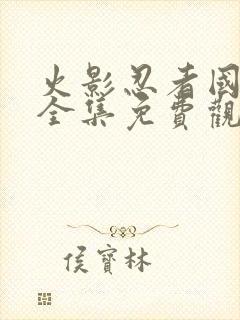 火影忍者國
全集免費觀
侯寶林